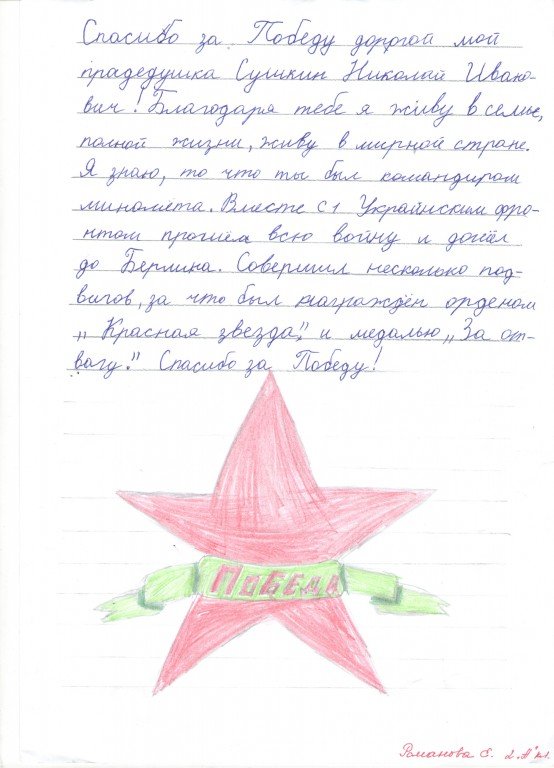 Спасибо за Победу дорогой мой
прадедушка Сушкин Николай Ивано-
вич! Благодаря тебе я живу в семье,
полной жизни, живу в мирной стране.
Я знаю, то что ты был командиром
миномёта. Вместе с 1 Украинским фро-
нтом прошёл всю войну и дошёл
до Берлина. Совершил несколько под-
вигов, за что был награждён орденом
„Красная звезда," и медалью „За от-
вагу." Спасибо за Победу!
ПОБЕДА
Романова С. 2 "А" кл.